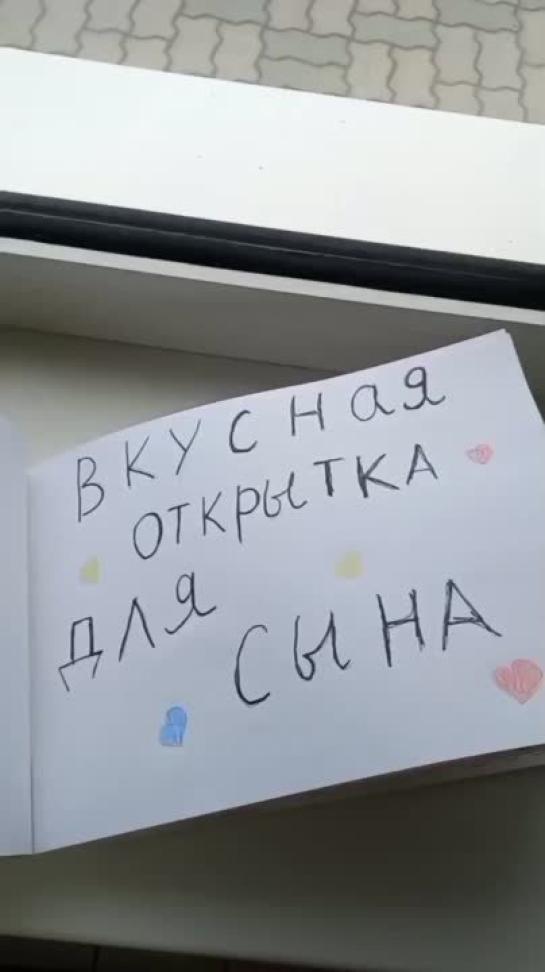 ВКУСНАЯ
ОТКРЫТКА
ДЛЯ
СЫНА